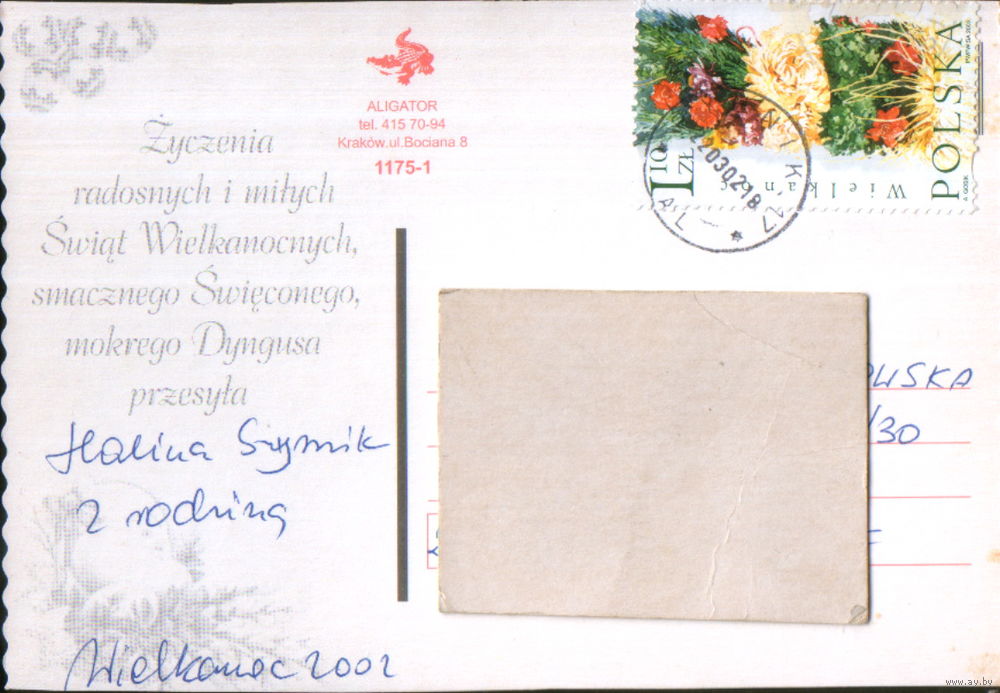 ALIGATOR
tel. 415 70-94
Kraków.ul.Bociana 8
1175-1
Życzenia
radosnych i miłych
Świąt Wielkanocnych,
smacznego Święconego,
mokrego Dyngusa
przesyła
Halina
z rodziną
Wielkanoc 2002
1 10 ZŁ
Wielkanoc
POLSKA
OWSKA
/30
www.av.by